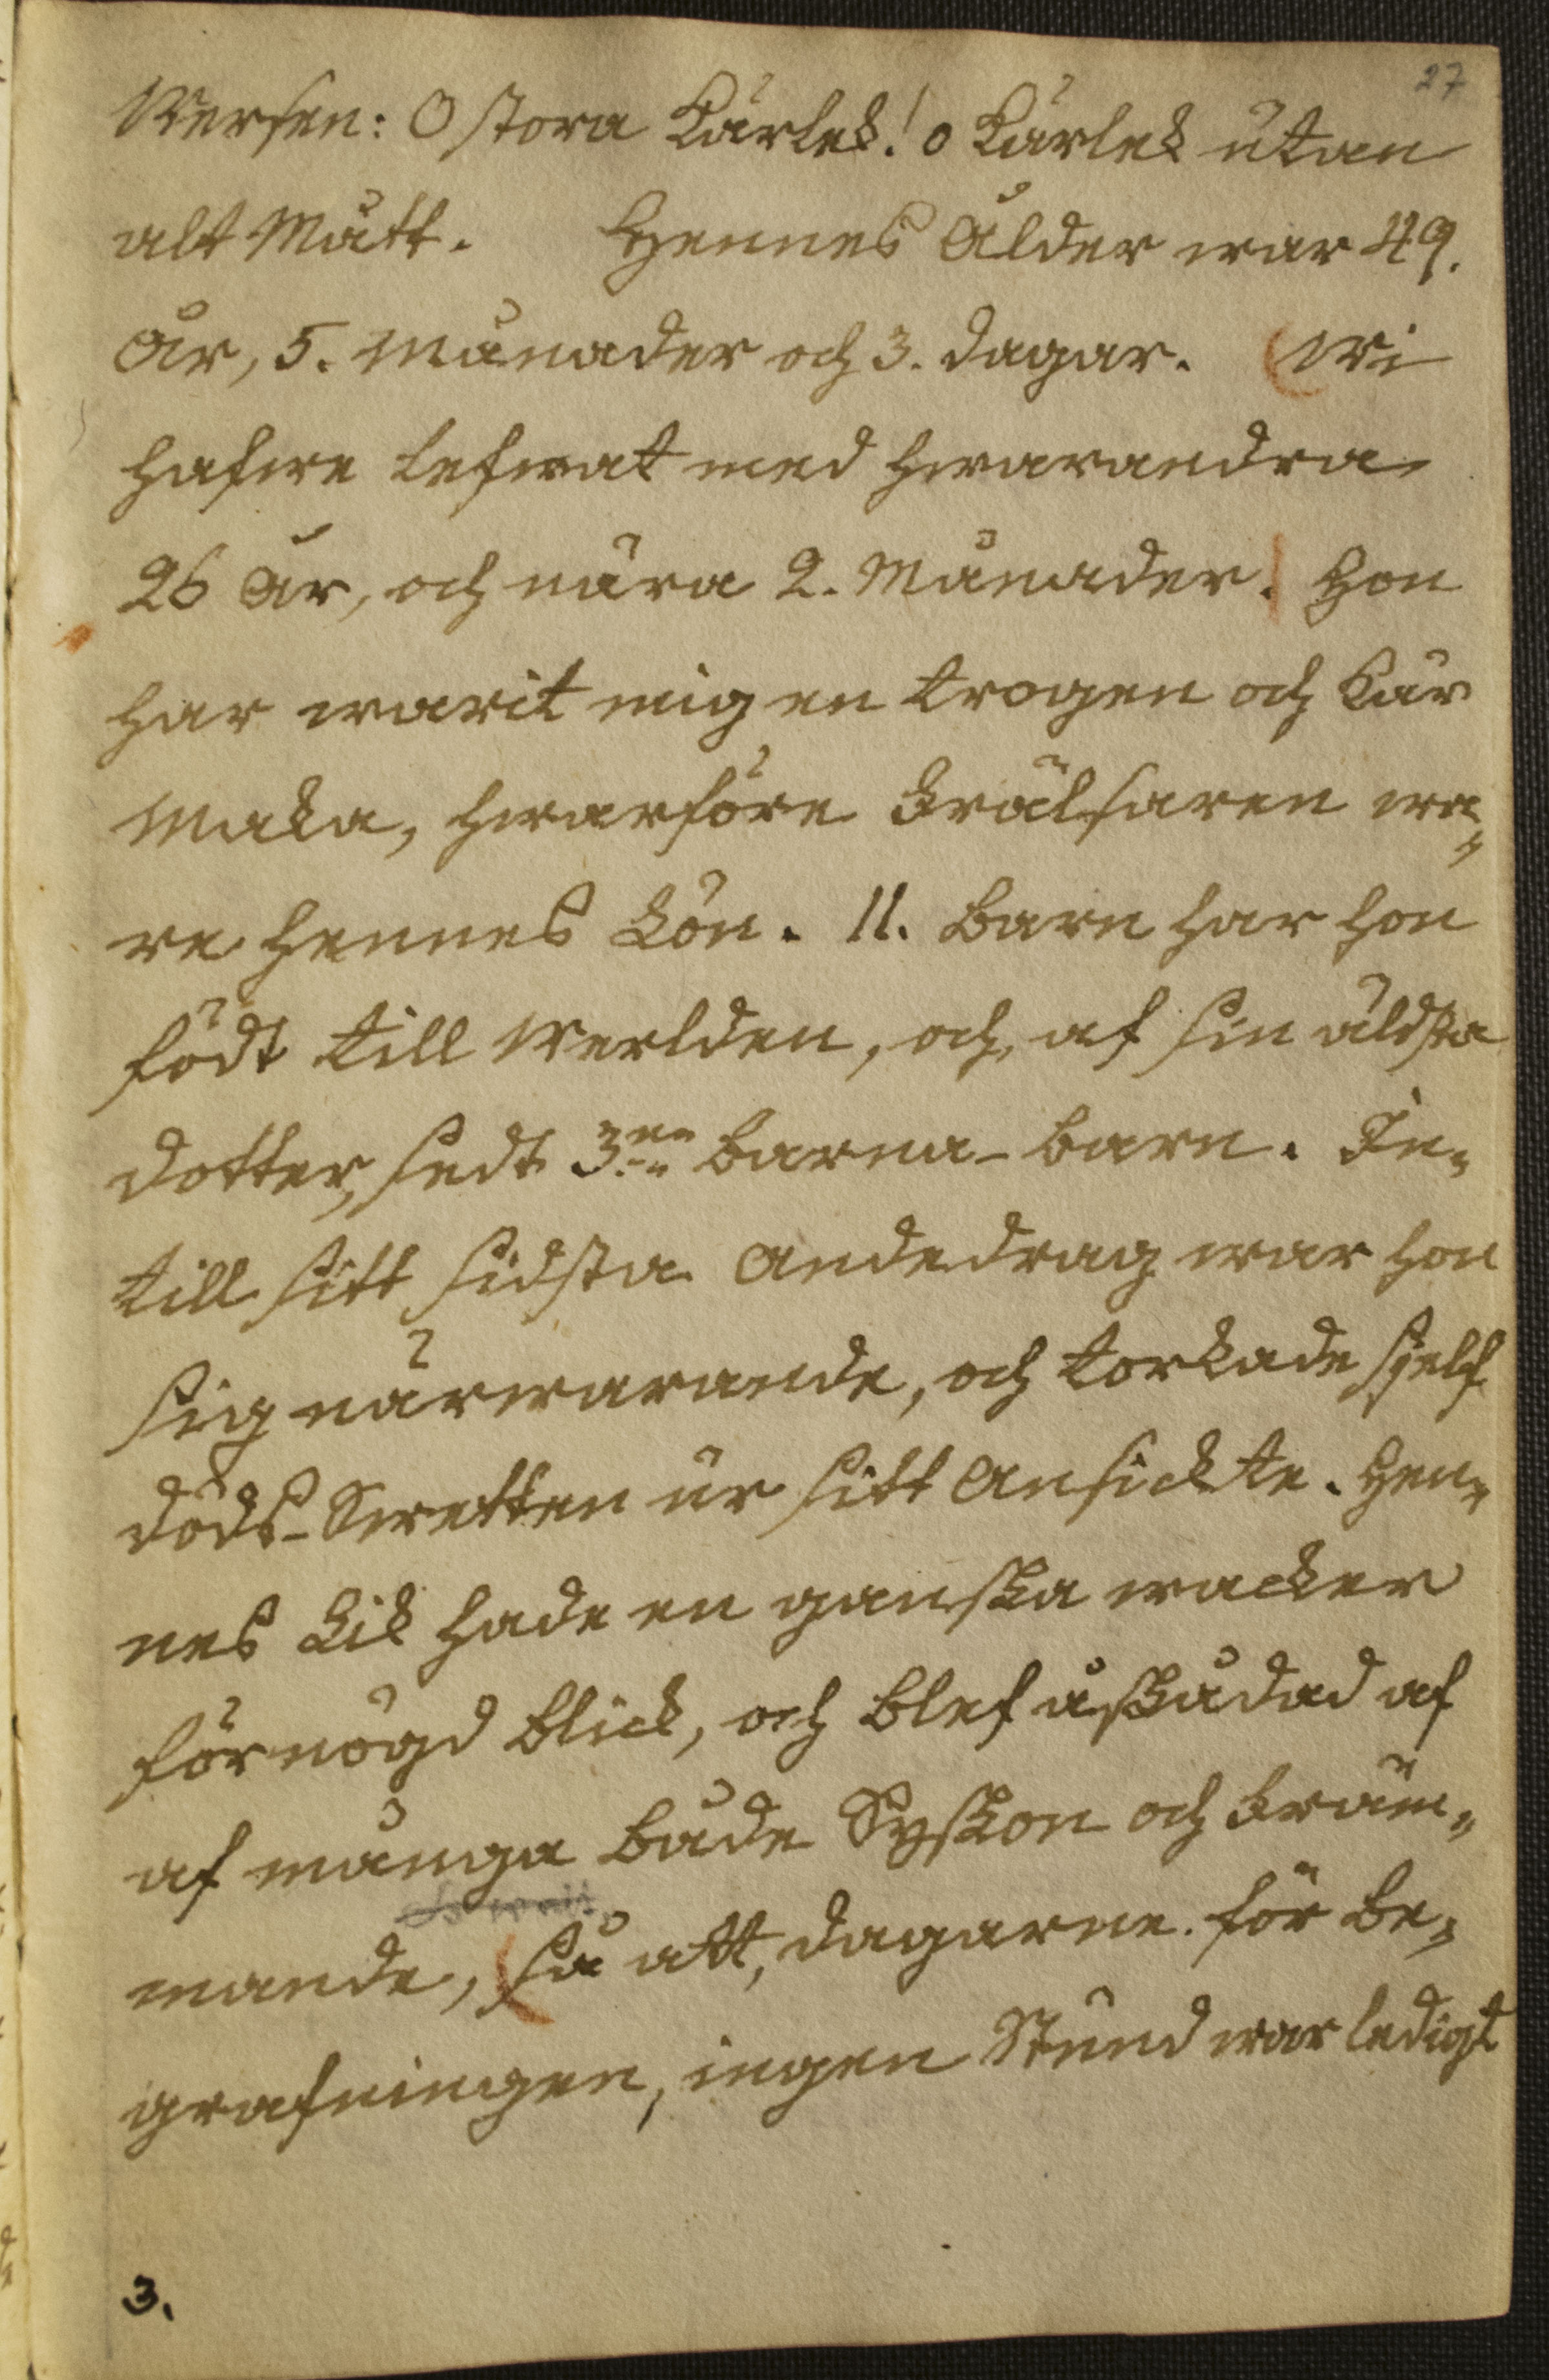 27
Versen: O stora Kärlek! o Kärlek utan
alt Mått. Hennes Ålder war 49.
År, 5. Månader och 3. dagar. (Wi
hafwe lefwat med hwarandra
26 År, och nära 2. Månader. Hon
har warit mig en trogen och kär
Maka, hwarföre Frälsaren wa„
re hennes Lön. 11. Barn har hon
födt till Werlden, och, af sin äldsta
dotter, sedt 3ne Barna-Barn. In„
till sitt sidsta Andedrag war hon
sig närwarande, och torkade sjelf
döds-Swetten ur sitt Ansickte. Hen„
nes Lik hade en ganska wacker
förnögd Blick, och blef åskådad af
af många både Syskon och Främ„
mande, (så att, dagarne för Be„
grafningen, ingen Stund war ledigt
3.